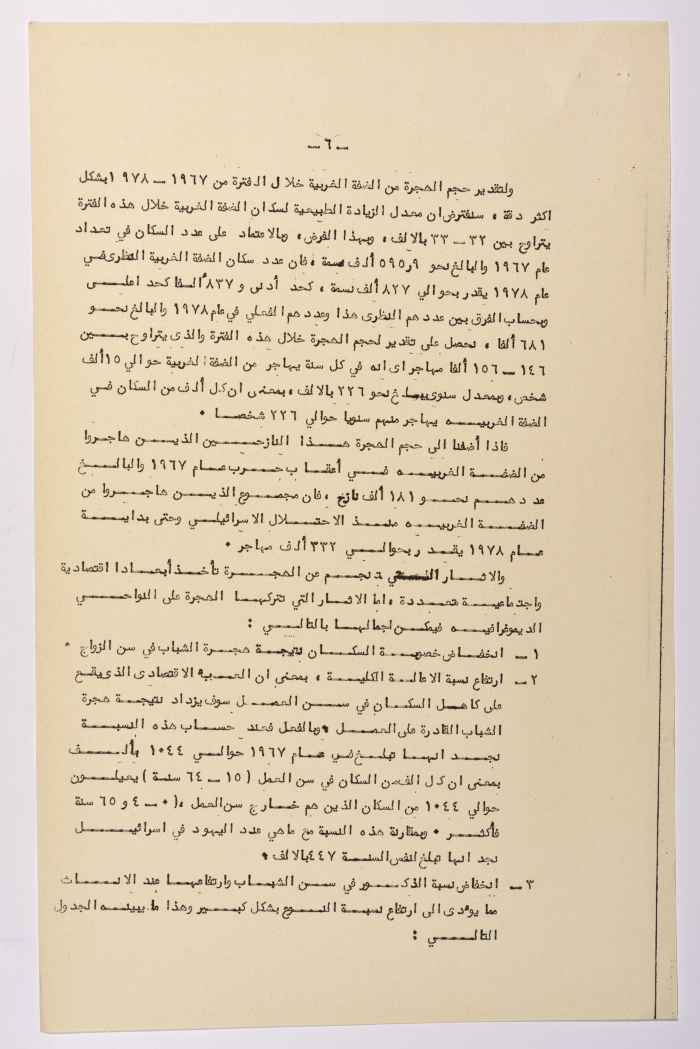 ـ ٦ ـ
ولتقدير حجم الهجرة من الضفة الغربية خلال الفترة من ١٩٦٧ ــ ١٩٧٨ بشكل
اكثر دقة ، سنفترض ان معدل الزيادة الطبيعية لسكان الضفة الغربية خلال هذه الفترة
يتراوح بين ٣٢ ــ ٣٣ بالالف ، وبهذا الفرض ، وبالاعتماد على عدد السكان في تعداد
عام ١٩٦٧ والبالغ نحو ٥٩٥٫٩ ألف نسمة ، فان عدد سكان الضفة الغربية النظرى في
عام ١٩٧٨ يقدر بحوالي ٨٢٧ ألف نسمة ، كحد أدنى و ٨٣٧ ألفا كحد اعلى
وبحساب الفرق بين عددهم النظرى هذا وعددهم الفعلي في عام ١٩٧٨ والبالغ نحو
٦٨١ ألفا ، نحصل على تقدير لحجم الهجرة خلال هذه الفترة والذى يتراوح بين
١٤٦ ــ ١٥٦ ألفا مهاجر اى انه في كل سنة يهاجر من الضفة الغربية حوالي ١٥ ألف
شخص ، وبمعدل سنوى يبلغ نحو ٢٢٦ بالالف ، بمعنى ان كل ألف من السكان في
الضفة الغربيه يهاجر منهم سنويا حوالي ٢٢٦ شخصا ٠
فاذا أضفنا الى حجم الهجرة هذا النازحين الذين هاجروا
من الضفة الغربيه في أعقاب حرب عام ١٩٦٧ والبالغ
عددهم نحو ١٨١ ألف نازح ، فان مجموع الذين هاجروا من
الضفة الغربيه منذ الاحتلال الاسرائيلي وحتى بداية
عام ١٩٧٨ يقدر بحوالي ٣٣٢ ألف مهاجر ٠
والاثار التي تنجم عن الهجرة تأخذ أبعادا اقتصادية
واجتماعية متعددة ، اما الاثار التي تتركها الهجرة على النواحي
الديموغرافيه فيمكن اجمالها بالتالي :
١ ــ انخفاض خصوبة السكان نتيجة هجرة الشباب في سن الزواج ٠
٢ ــ ارتفاع نسبة الاعالة الكلية ، بمعنى ان العبء الاقتصادى الذى يقع
على كاهل السكان في سن العمل سوف يزداد نتيجة هجرة
الشباب القادرة على العمل ، وبالفعل فعند حساب هذه النسبة
نجد انها تبلغ في عام ١٩٦٧ حوالي ١٠٤٤ بألف
بمعنى ان كل الف من السكان في سن العمل ( ١٥ ــ ٦٤ سنة ) يعيلون
حوالي ١٠٤٤ من السكان الذين هم خارج سن العمل ، ( ٠ ــ ٤ و ٦٥ سنة
فأكثر ٠ وبمقارنة هذه النسبة مع ماهي عدد اليهود في اسرائيل
نجد انها تبلغ لنفس السنة ٤٤٧ بالالف ٠
٣ ــ انخفاض نسبة الذكور في سن الشباب وارتفاعها عند الاناث
مما يؤدى الى ارتفاع نسبة النوع بشكل كبير وهذا ما يبينه الجدول
التالي :